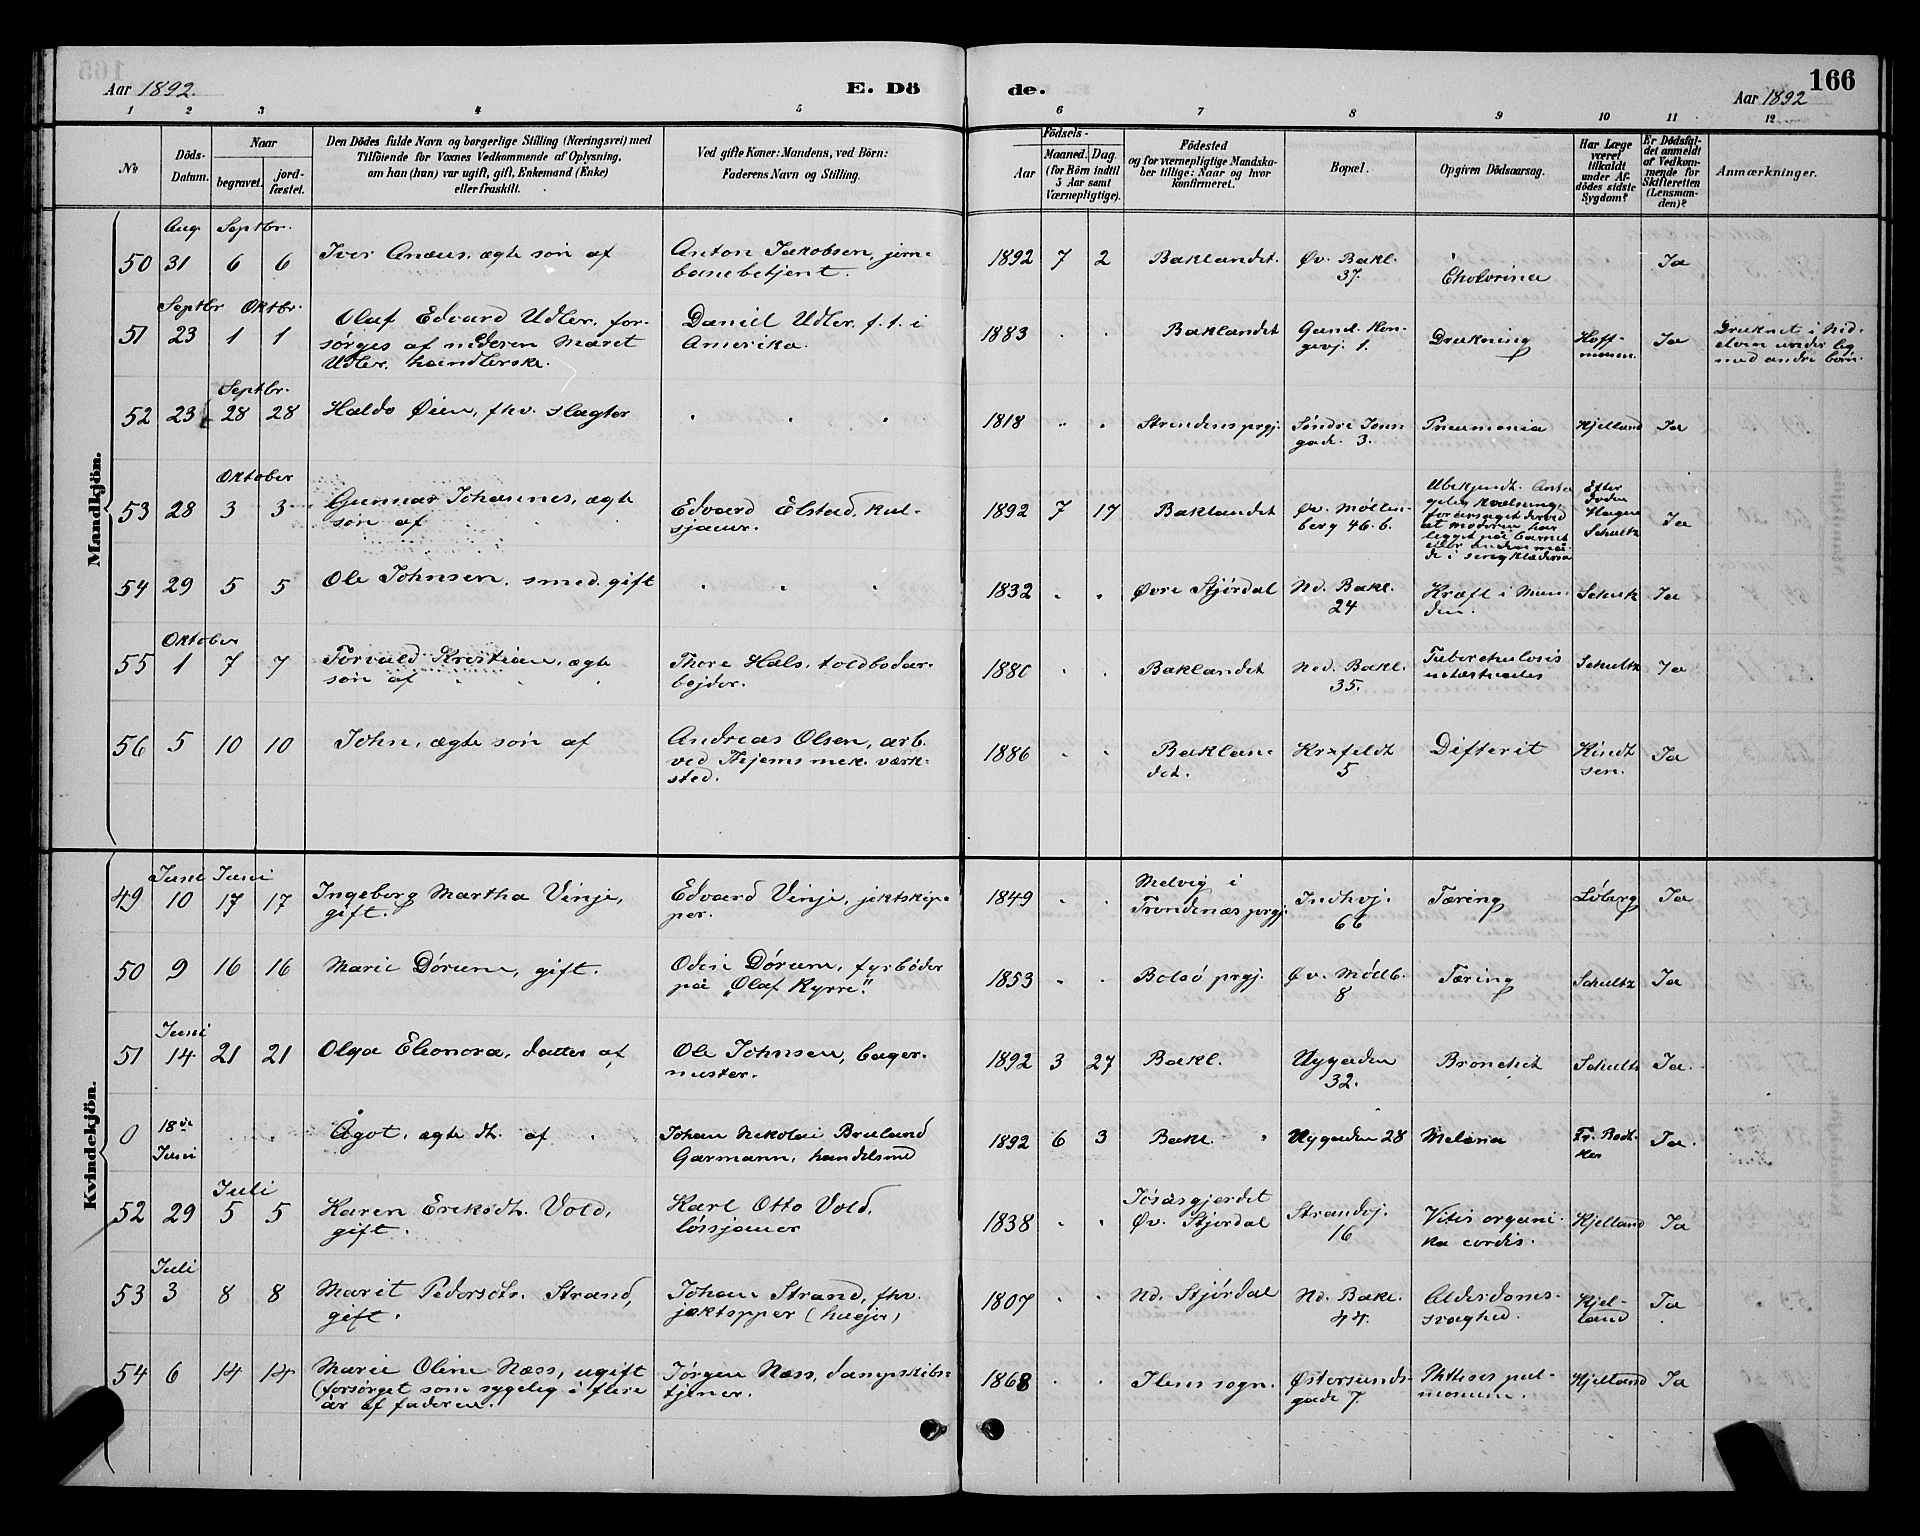 Aar 1892.
E. Dö
de.
166
Aar 1892
1
2
3
4
5
6
7
8
9
10
11
12
No
Döds-
Datum.
Naar
begravet.
jord-
fæstet.
Den Dödes fulde Navn og borgerlige Stilling (Næringsvei) med
Tilföiende for Voxnes Vedkommende af Oplysning,
om han (hun) var ugift, gift, Enkemand (Enke)
eller fraskilt.
Ved gifte Koner: Mandens, ved Börn:
Faderens Navn og Stilling.
Födsels-
Aar
Maaned.
Dag.
(for Börn indtil
5 Aar samt
Værnepligtige).
Födested
og for værnepligtige Mandska-
ber tillige: Naar og hvor
konfirmeret.
Bopæl.
Opgiven Dödsaarsag.
Har Læge
været
tilkaldt
under Af-
dödes sidste
Sygdom?
Er Dödsfal-
det anmeldt
af Vedkom-
mende for
Skifteretten
(Lensman-
den)?
Anmærkninger.
Mandkjön.
Aug. Septbr.
50 31 6 6 Iver Anæus, ægte søn af
Anton Jakobsen, jern-
banebetjent.
1892 7 2 Baklandet. Øv. Bakl.
37.
Cholerina
Ja
Septbr Oktbr.
51 23 1 1 Olaf Edvard Udler, for-
sørges af moderen Maret
Udler, handlerske.
Daniel Udler, f. t. i
Amerika.
1883 Baklandet Gaml. Kon-
gevj. 1.
Drukning
Hoff-
mann.
Ja
Druknet i Nid-
elven under leg
med andre børn.
Septbr.
52 23 28 28 Haldo Øien, fhv. slagter
1818 Strindens prgj. Søndre
gade. 3.
Pneumonia Kjelland Ja
Oktober
53 28 3 3 Gunnar Johannes, ægte
søn af
Edvard Elstad, kul-
sjauer.
1892 7 17 Baklandet Øv. Møllen-
berg 46. b.
Ubekjendt. Anta-
gelig kvælning,
foraarsaget derved
at moderen har
ligget på barnet
i sengklæderne
Efter
døden
Hagen
Schultz
Ja
54 29 5 5 Ole Johnsen, smed, gift
1832 Øvre Stjørdal Nd. Bakl.
24
Kræft i Mun-
den.
Schultz Ja
Oktober
55 1 7 7 Torvald Kristian, ægte
søn af
Thore Hals, toldbodar-
bejder.
1880 Baklandet Ned. Bakl.
35.
Tuberchulosis
Schultz Ja
56 5 10 10 John, ægte søn af
Andreas Olsen, arb.
ved Thjems mek. værk-
sted.
1886 Baklan-
det.
5
Difterit
Ja
Kvindekjön.
Juni Juni
49 10 17 17 Ingeborg Martha Vinje,
gift.
Edvard Vinje, jektskip-
per.
1849 Melvig i
Trondenæs prgj.
Indhvj.
66
Tæring Løberg Ja
50 9 16 16 Marie Dórum, gift.
Odin Dórum, fyrbøder
på „Olaf Kyrre".
1853 Bolsø prgj. Øv. Møllb.
8
Tæring Schultz Ja
Juni
51 14 21 21 Olga Eleonora, datter af
Ole Johnsen, bager-
mester.
1892 3 27 Bakl. Nygaden
32.
Bronchit Schultz Ja.
0 18de
Juni
Ågot, ægte dt. af
Johan Nikolai Bruland
Garmann, handelsmd
1892 6 3 Bakl. Nygaden 28 Melæna
Ja.
Juli
52 29 5 5 Karen Eriksdt. Vold,
gift.
Karl Otto Vold,
løssjauer
1838 Jøsåsgjerdet
Øv. Stjørdal
Strandvj.
16
Vitis organi-
ka cordis.
Kjelland Ja
Juli
53 3 8 8 Marit Pedersdtr. Strand,
gift.
Johan Strand, fhv.
jæktopper (husejer)
1807 Nd. Stjørdal Nd. Bakl.
44.
Alderdoms-
svaghed.
Kjel-
land
Ja
54 6 14 14 Marie Oline Næss, ugift
(forsørget som sygelig i flere
år af faderen.
Jørgen Næss, dampskibs-
tjener.
1868 Ilens sogn. Østersunds-
gade 7.
Phthisis pul-
monum.
Kjelland Ja